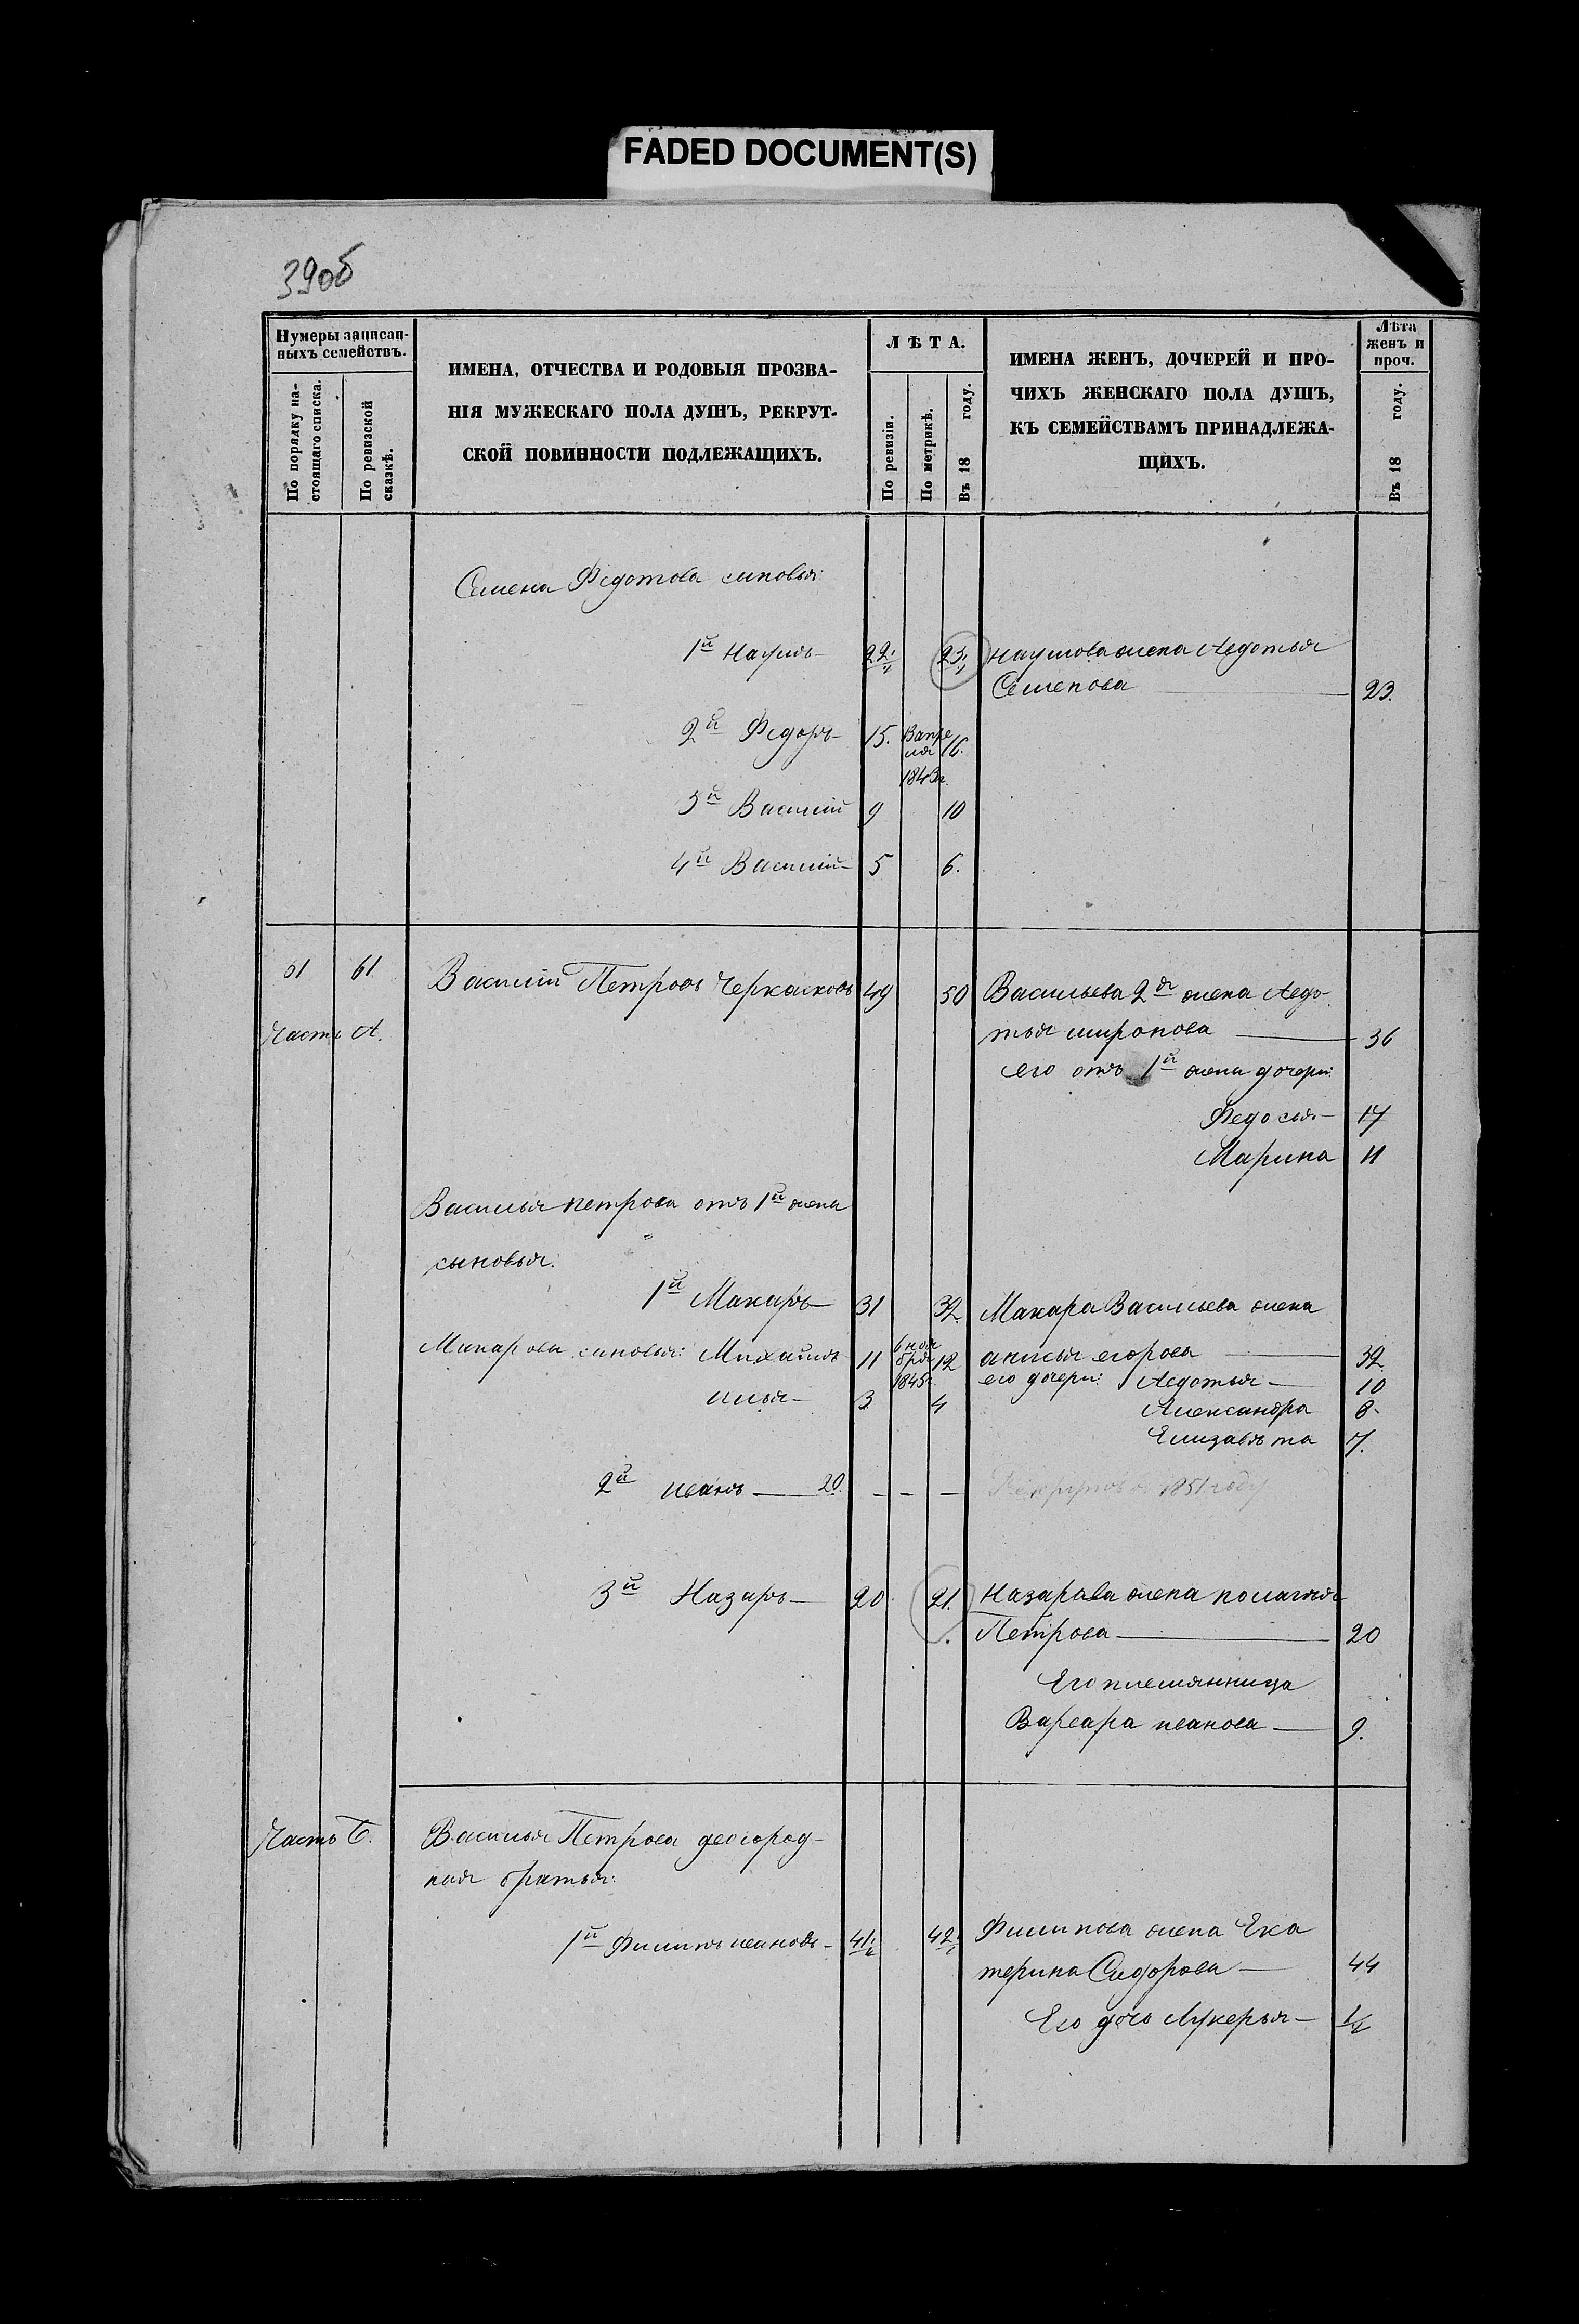 FADED DOCUMENT(S)
39об
Нумеры записан-
ныхъ семействъ.
По порядку на-
стоящаго списка.
По ревизской
сказкѣ.
ИМЕНА, ОТЧЕСТВА И РОДОВЫЯ ПРОЗВА-
НІЯ МУЖЕСКАГО ПОЛА ДУШЪ, РЕКРУТ-
СКОЙ ПОВИННОСТИ ПОДЛЕЖАЩИХЪ.
ЛѢТА.
По ревизіи.
По метрикѣ.
Въ 18 году.
ИМЕНА ЖЕНЪ, ДОЧЕРЕЙ И ПРО-
ЧИХЪ ЖЕНСКАГО ПОЛА ДУШЪ,
КЪ СЕМЕЙСТВАМЪ ПРИНАДЛЕЖА-
ЩИХЪ.
Лѣта
женъ и
проч.
Въ 18 году.
Семена Федотова сыновья:
1й Наумъ 22 23 Наумова жена Авдотья
Семенова 23.
2й Федоръ 15. 16.
1843г.
3й Василій 9 10
4й Василій 5 6.
61 61 Василій Петровъ Черкасковъ 49 50 Васильева 2я жена Авдо-
Часть А. тья миронова 36
его отъ 1й жены дочери:
Федосья 17
Марина 11
Василья петрова отъ 1й жены
сыновья:
1й Макаръ 31 32 Макара Васильева жена
Макарова сыновья: Михаилъ 11 6 ноя
бря
1845г. 12 анисья егорова 32.
его дочери: Авдотья 10
илья 3 4 Александра 8.
Елизавѣта 7.
2й иванъ 20. — — — 1851 году
3й Назаръ 20 21. Назарова жена
Петрова 20
Его племянница
Варвара иванова 9.
Часть Б. Василья Петрова двоюрод-
ныя братья:
1й Филипъ ивановъ 41 42 Филипова жена Ека
терина Сидорова 44
Его дочь Лукерья 1/2